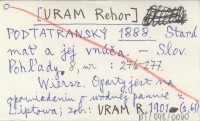 [URAM Rehor]
PODTATRANSKÝ 1888. Stará
mať a jej vnuča. – Slov.
Pohľady 8, nr : 276-277.
Wiersz. Oparty jest na
opowiadaniu o wodnej pannie z
Liptowa; zob: URAM R. 1901 (s. 61)